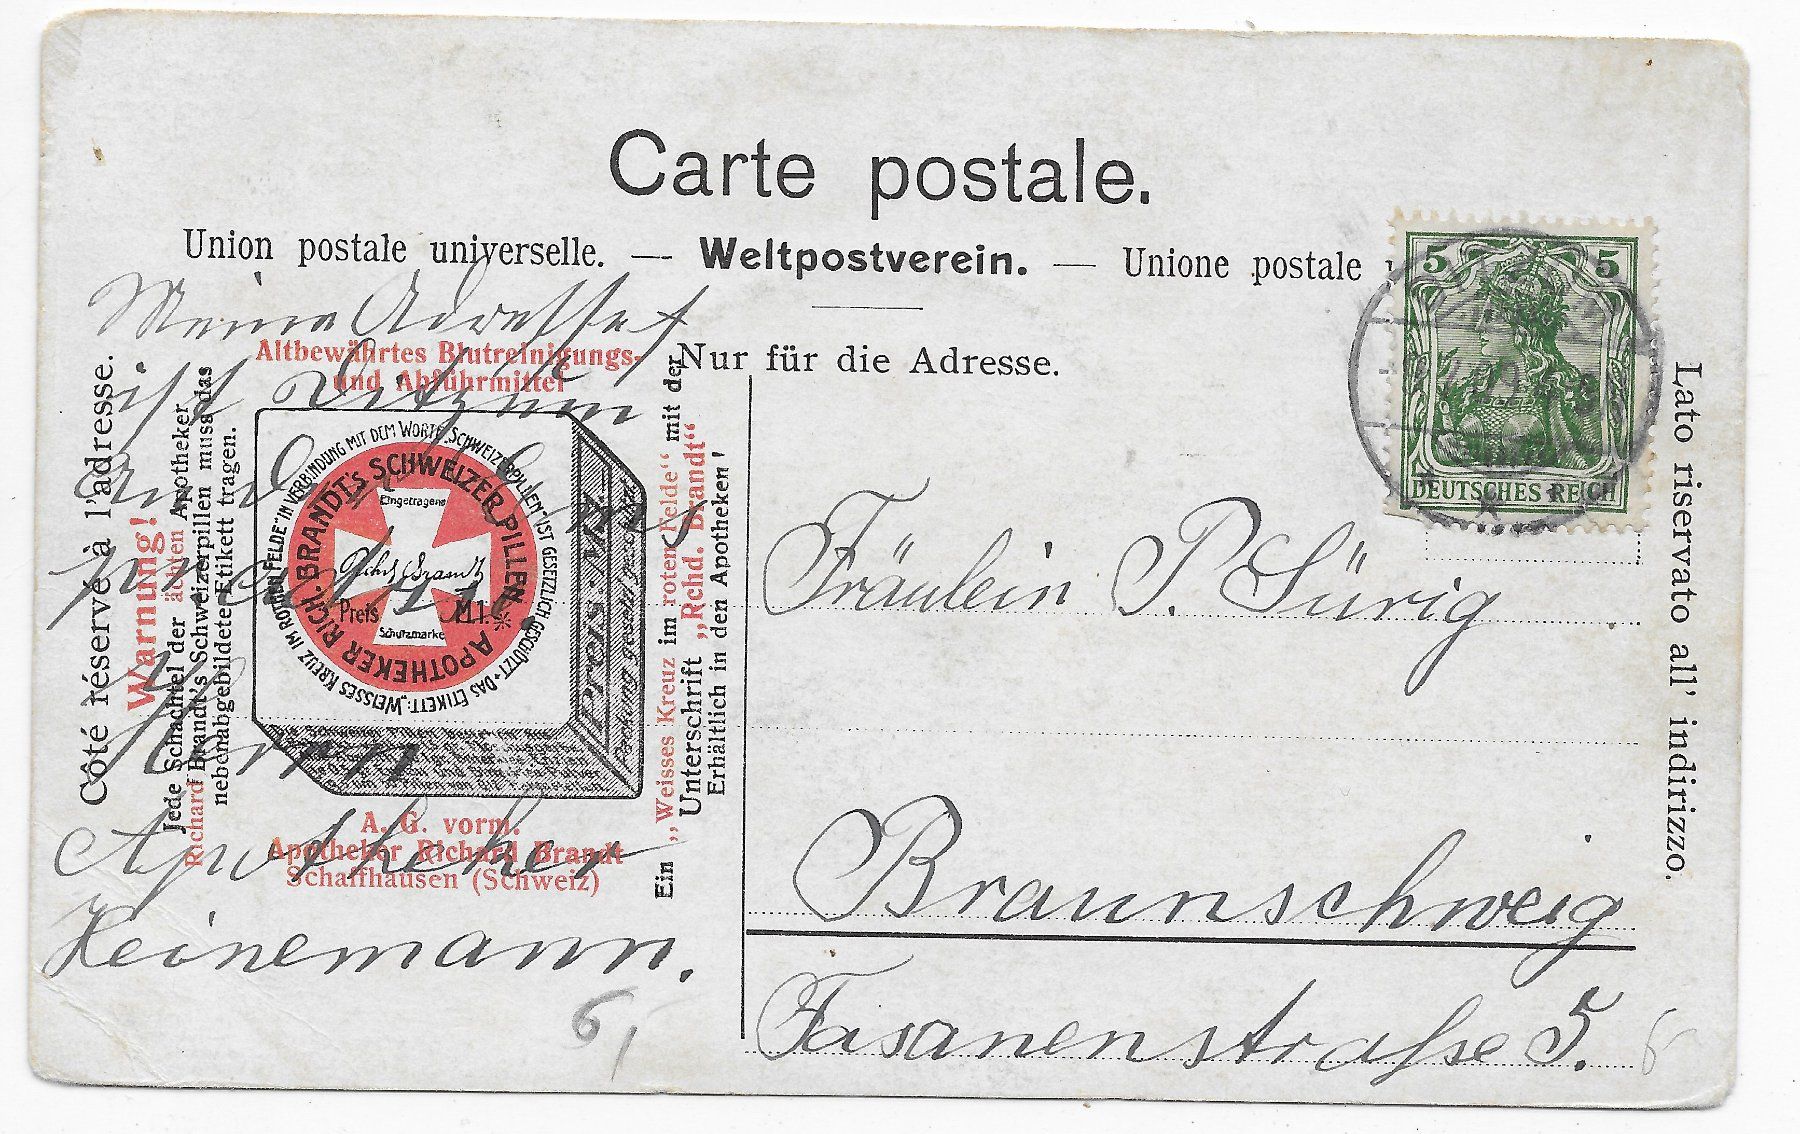 Carte postale.
Union postale universelle. — Weltpostverein. — Unione postale
Nur für die Adresse.
Côté réservé à l'adresse.
Warnung!
Jede Schachtel der ächten Apotheker
Richard Brandt's Schweizerpillen muss das
nebenabgebildete Etikett tragen.
Altbewährtes Blutreinigungs-
und Abführmittel
IN VERBINDUNG MIT DEM WORTE „SCHWEIZERPILLEN" IST GESETZLICH GESCHÜTZT • DAS ETIKETT: „WEISSES KREUZ IM ROTHEN FELDE"
APOTHEKER RICH. BRANDT'S SCHWEIZERPILLEN
Eingetragene
Richd Brandt
Preis M1.
Schutzmarke
A. G. vorm.
Apotheker Richard Brandt
Schaffhausen (Schweiz)
Ein „Weisses Kreuz im roten Felde" mit der
Unterschrift „Rchd. Brandt"
Erhältlich in den Apotheken!
Meine Adresse
ist Ditzum
Herrn
Apotheker
Heinemann.
6
5 5
DEUTSCHES REICH
Fräulein P. Sürig
Braunschweig
Fasanenstraße 5.
Lato riservato all' indirizzo.